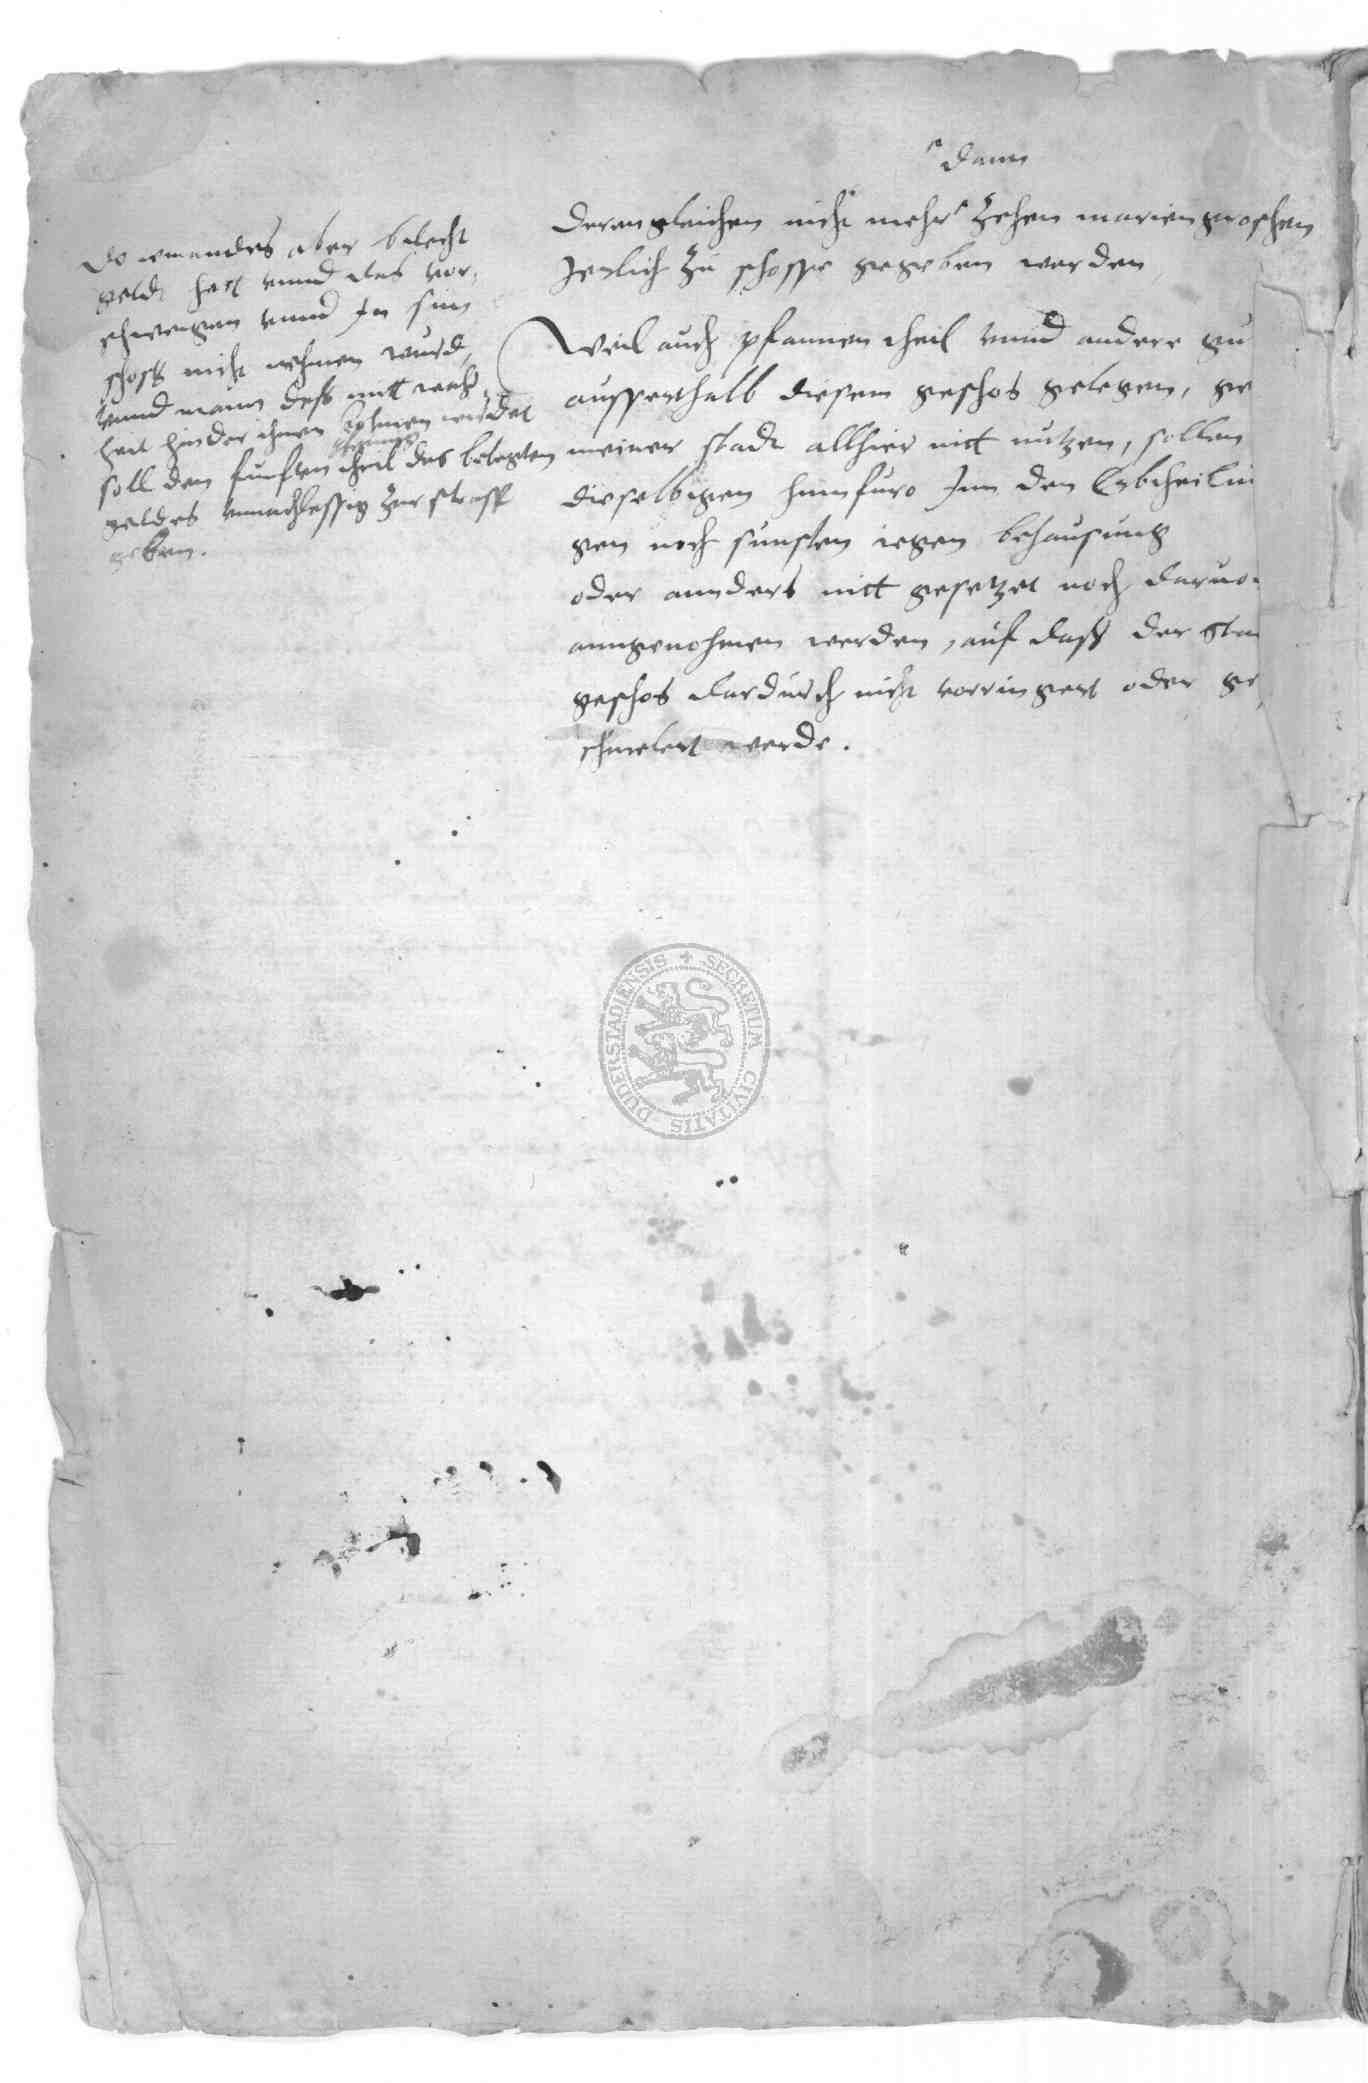 dann
derengleichen nicht mehr zehen mariengroschen
Jerlich zu schosse gegeben werden
Weil auch pfannen theil vnnd andere gu
ausserthalb diesem geschos gelegen, ge
meiner stadt allhier nitt nutzen, sollen
dieselbigen hinnfuro Inn den Erbtheilu
gen noch sunsten iegen behausung
oder annders nitt gesetzet noch daruo
anngenohmen werden, auf daß der sta
geschos dardurch nicht vorringert oder ge
schmelert werde.
Do iemandes aber belecht
geldt hett vnnd das vor
schweigen vnnd In sein
schoß nicht nehmen wurd,
vnnd mann deß mitt war
heit hinder ihnen kohmen wurdet
soll den funften theil des belegten
geldes vnnachlessig zur straff
geben.
SECRETUM CIVITATIS DUDERSTADIENSIS